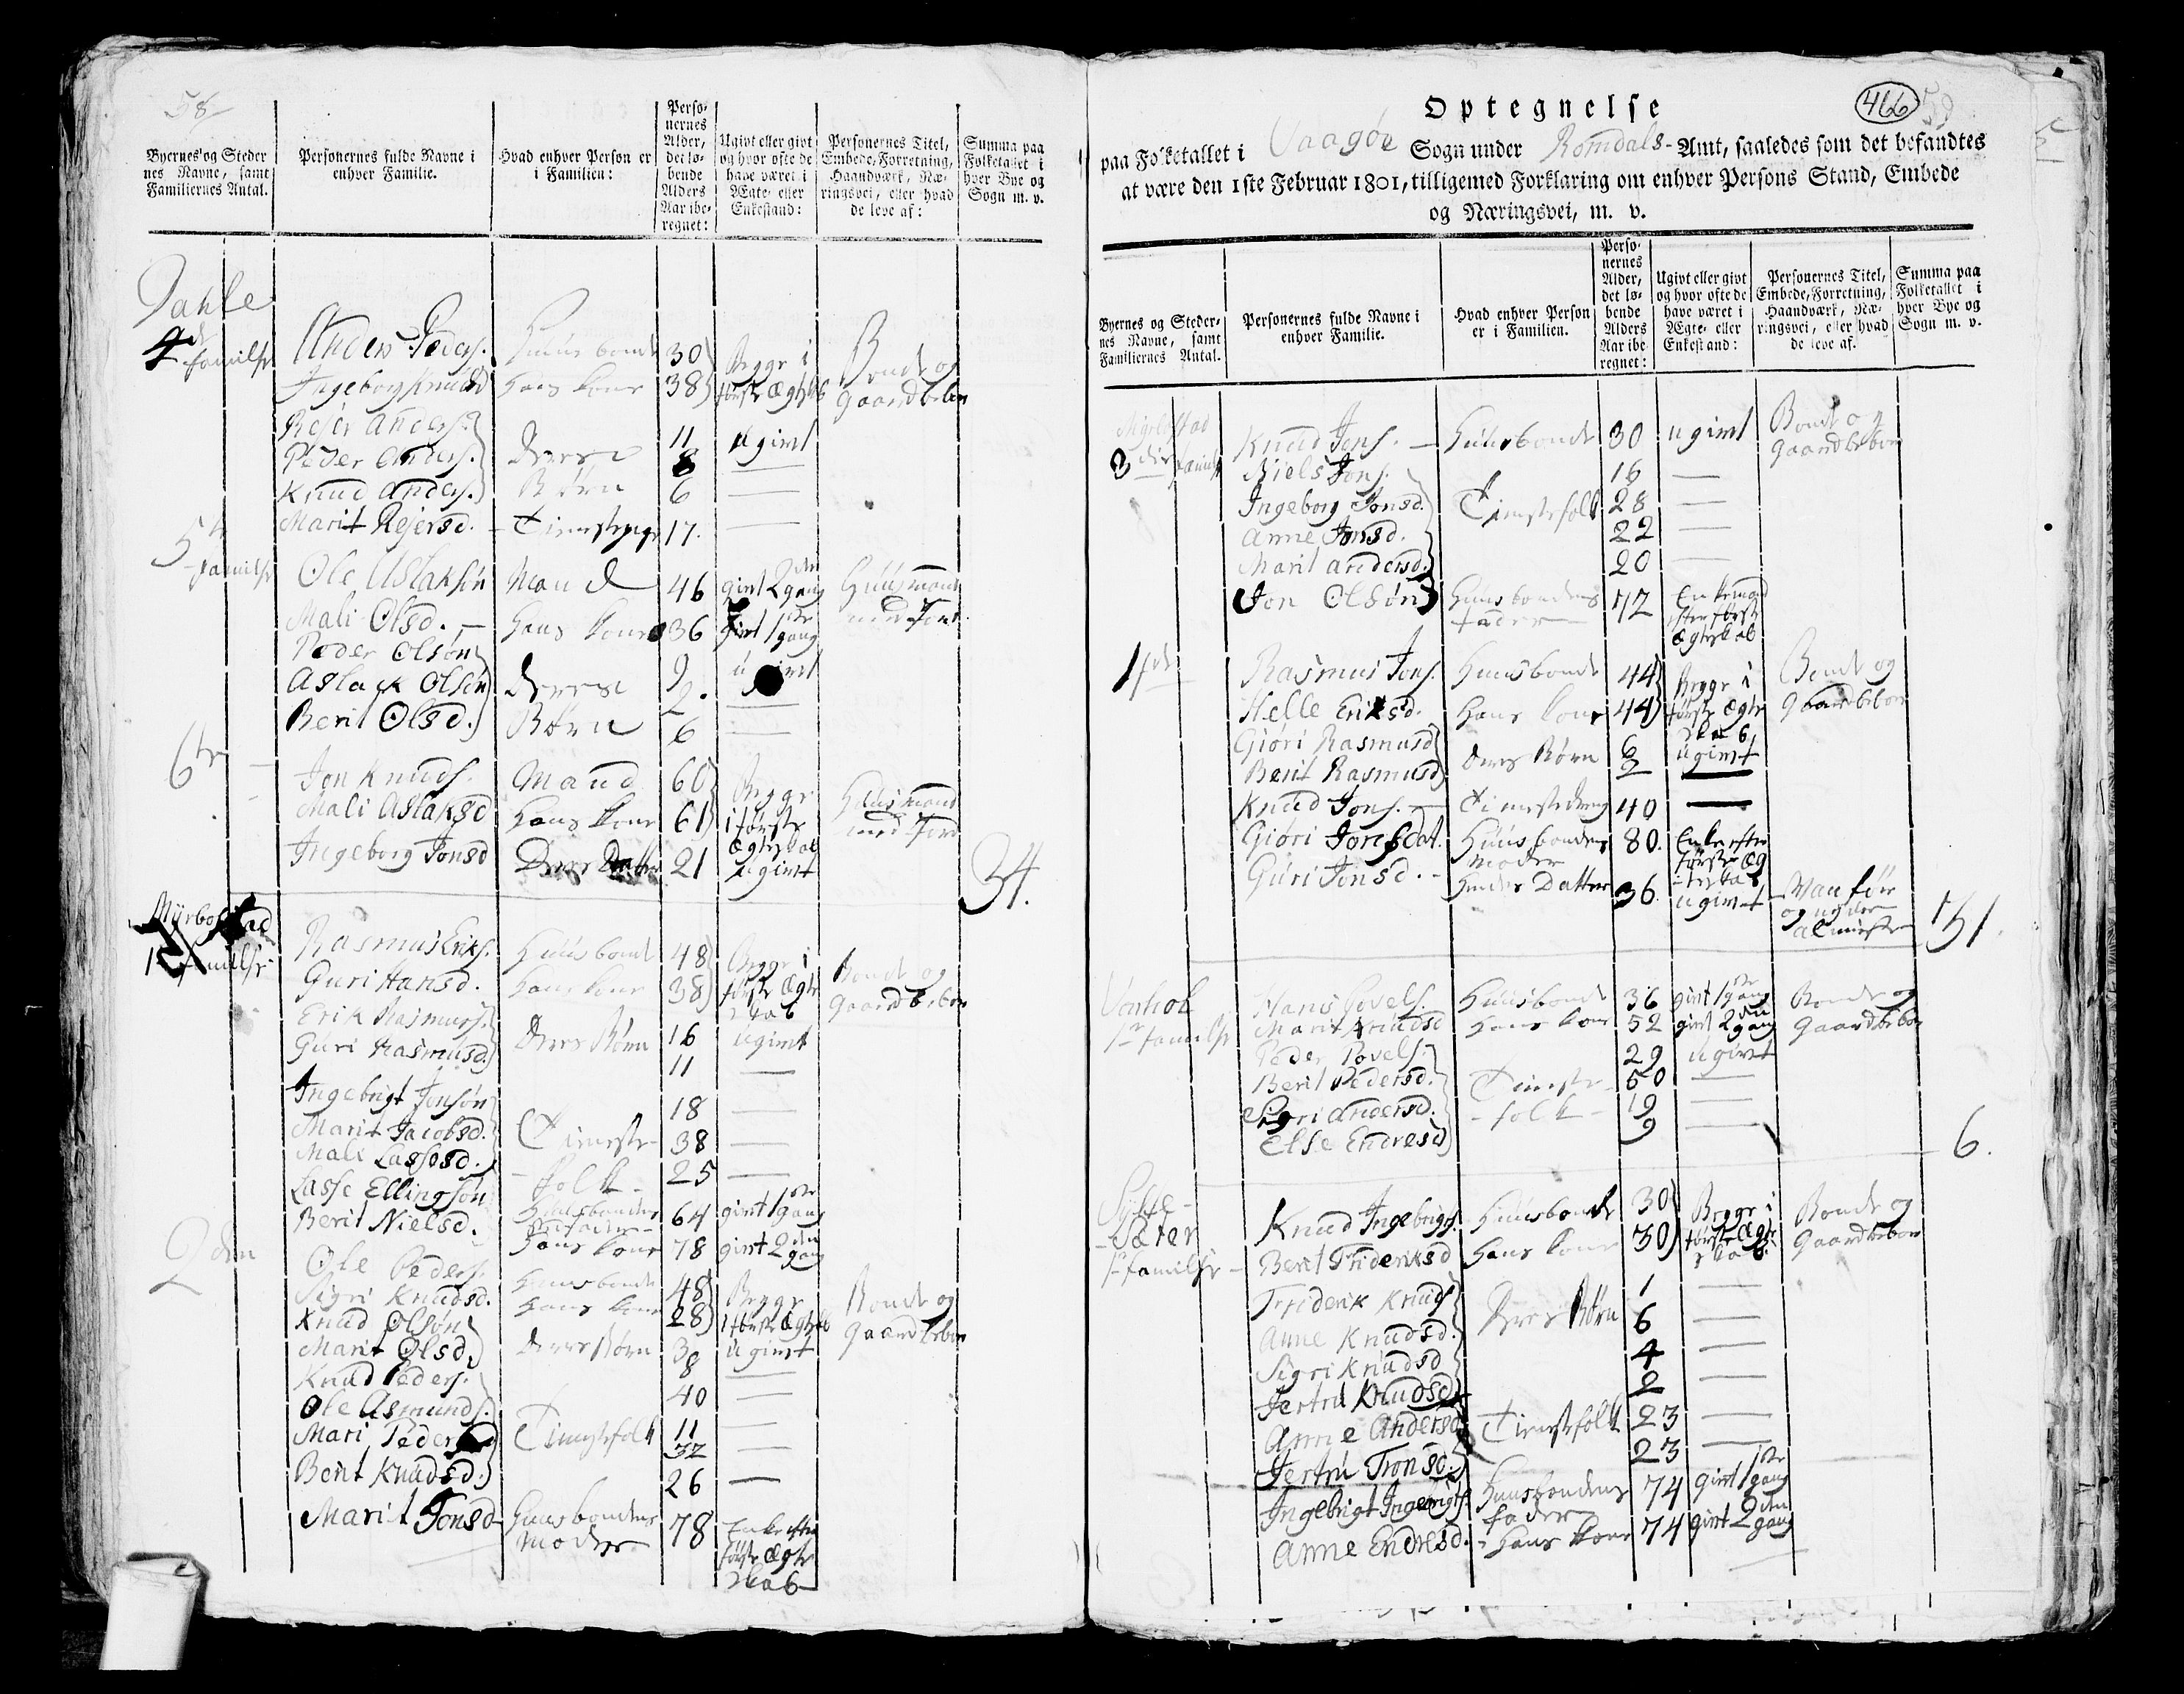 58
Byernes og Steder
nes Navne, samt
Familiernes Antal.
Personernes fulde Navne i
enhver Familie.
Hvad enhver Person er
i Familien:
Perso-
nernes
Alder,
det lø-
bende
Alders
Aar ibe-
regnet:
Ugivt eller givt
og hvor ofte de
have været i
Ægte- eller
Enkestand:
Personernes Titel,
Embede, Forretning,
Haandværk, Næ-
ringsvei, eller hvad
de leve af:
Summa paa
Folketallet i
hver Bye og
Sogn m. v.
Dahle
4de familie Anders Peders. Huusbonde 30 Begge i Bonde og
Ingeborg Knudsd hans kone 38 første Ægtskab Gaardbeboer
Rejer Anders. 11 ugivt
Peder Anders. Deres 8 —
Knud Anders. Børn 6 —
Marit Rejersd. - Tienestepige 17. —
5te familie Ole Aslaksøn Mand 46 givt 2den gang Huusmand
Mali Olsd. — hans kone 36 givt 1ste gang med Jord.
Peder Olsøn 9 ugivt
Aslack Olsøn Deres 2. —
Berit Olsd. Børn 6 —
6te Jon Knuds. Mand 60 Begge Huusmand
Mali Aslaksd hans kone 61 i første med Jord
Ægteskab
Ingeborg Jonsd Deres Datter 21 ugivt
34.
Myrbostad
1ste familie Rasmus Eriks. Huusbonde 48 Begge i Bonde og
Guri Hansd. hans kone 38 første Ægte Gaardbeboer
skab
Erik Rasmuss. Deres Børn 16 ugivt
Guri Rasmusd. 11 —
Ingebrigt Jonsøn 18 —
Marit Jacobsd. Tieneste- 38 —
Mali Lassesd. - folk - 25 —
Lasse Ellingsøn Huusbondens 64 givt 1ste gang
Berit Nielsd. hans kone 78 givt 2den gang
2den Ole Peders. Huusbonde 48 Begge Bonde og
Sigri Knudsd. hans kone 28 i første Ægtskab Gaardbeboer
Knud Olsøn Deres Børn 3 ugivt
Marit Olsd. 8 —
Knud Peders. 40 —
Ole Asmunds. Tienestefolk 11 —
Mari Peders 32 —
Berit Knudsd. 26 —
Marit Jonsd - Huusbondens 78 Enke efter
Moder første Ægte
skab
Optegnelse
466
59
paa Folketallet i Vaagøe Sogn under Romdals - Amt, saaledes som det befandtes
at være den 1ste Februar 1801, tilligemed Forklaring om enhver Persons Stand, Embede
og Næringsvei, m. v.
Byernes og Steder-
nes Navne, samt
Familiernes Antal.
Personernes fulde Navne i
enhver Familie.
Hvad enhver Person
er i Familien.
Perso-
nernes
Alder,
det lø-
bende
Alders
Aar ibe
regnet:
Ugivt eller givt
og hvor ofte de
have været i
Ægte- eller
Enkestand:
Personernes Titel,
Embede, Forretning,
Haandværk, Næ-
ringsvei, eller hvad
de leve af.
Summa paa
Folketallet i
hver Bye og
Sogn m. v.
Myrbostad
3die familie Knud Jons. — Huusbonde 30 ugivt Bonde og
Gaardbeboer
Niels Jons. 16 —
Ingeborg Jonsd. Tienestefolk 28 —
Anne Jonsd. 22 —
Marit Andersd. 20 —
Jon Olsøn Huusbondens 72 Enkemand
Fader efter første
Ægteskab
Rasmus Jons. Huusbonde 44 Begge i Bonde og
Helle Eriksd. hans kone 44 første Ægte Gaardbeboer
skab
Giøri Rasmusd Deres Børn 6 ugivt
Berit Rasmusd 2 —
Knud Jons. — Tienestedreng 40 —
Giøri Jonsdat. Huusbondens 80. Enke efter
Moder første Æg
teskab
Guri Jonsd. - hendes Datter 36. ugivt Vanfør
og nyder
almisse
51.
1ste familie Hans Povels. Huusbonde 36 givt 1ste gang Bonde og
Marit Knudsd hans kone 52 givt 2den gang Gaardbeboer
Peder Povels. 29 ugivt
Berit Pedersd. Tieneste- 50 —
Sigri Andersd. - folk - 19 —
Else Endresd 9 —
6.
Sylte-
Sæter Knud Ingebrigs. Huusbonde 30 Begge i Bonde og
1ste familie - Berit Friderksd hans kone 30 første Ægte Gaardbeboer
skab.
Friderik Knuds Deres Børn 1 —
Anne Knudsd. 6 —
Sigri Knudsd 4 —
Jertru Knudsd 2 —
Anne Andersd Tienestefolk 23 —
Jertru Tronsd. 23 —
Ingebrigt Ingebrigts. Huusbondens 74 givt 1ste gang
Fader
Anne Endresd. - hans kone 74 givt 2den gang